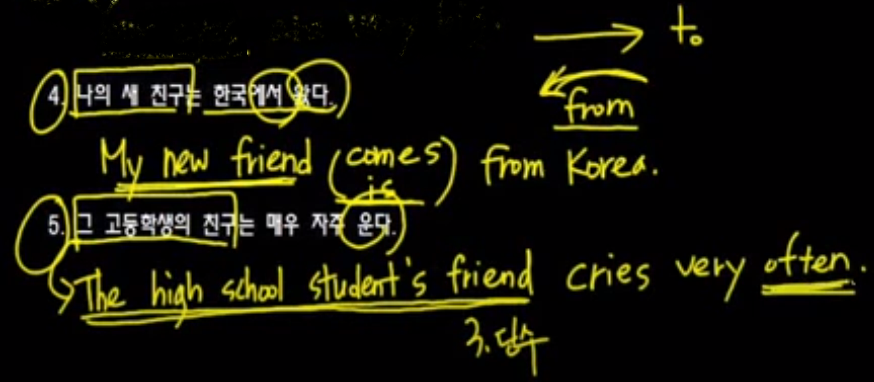 → to
4. 나의 새 친구는 한국에서 왔다.
from
My new friend (comes is) from Korea.
5. 그 고등학생의 친구는 매우 자주 운다.
The high school student's friend cries very often.
3.단수